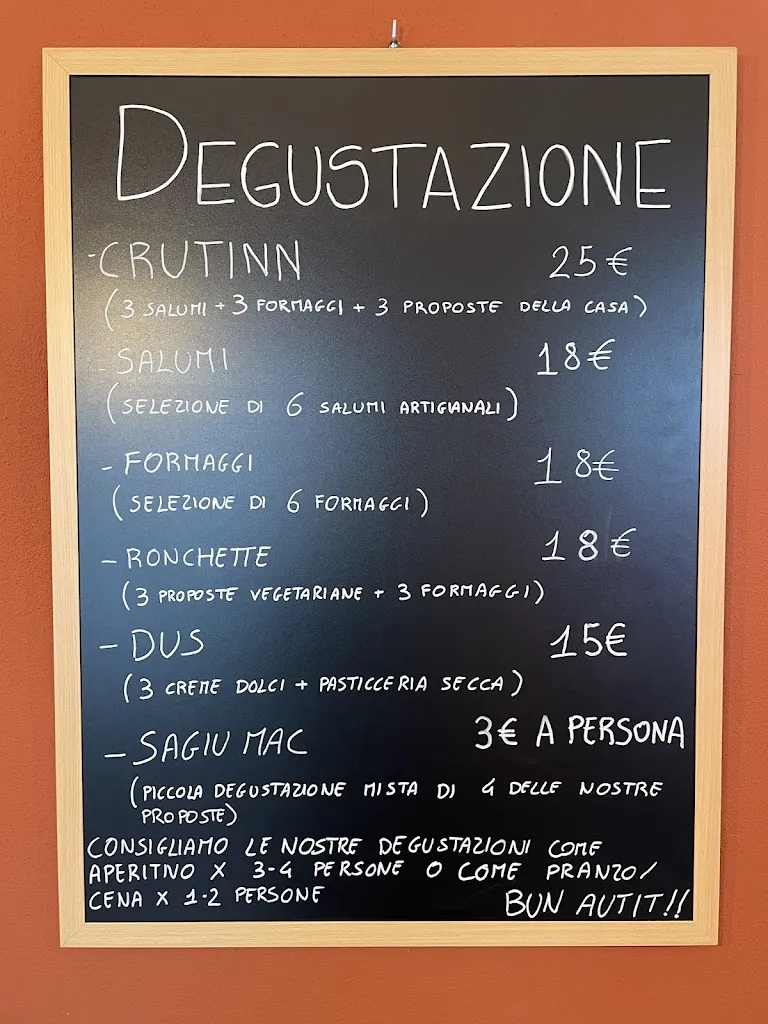 DEGUSTAZIONE
-CRUTINN 25€
(3 SALUMI + 3 FORMAGGI + 3 PROPOSTE DELLA CASA)
- SALUMI 18€
(SELEZIONE DI 6 SALUMI ARTIGIANALI)
- FORMAGGI 18€
(SELEZIONE DI 6 FORMAGGI)
- RONCHETTE 18€
(3 PROPOSTE VEGETARIANE + 3 FORMAGGI)
- DUS 15€
(3 CREME DOLCI + PASTICCERIA SECCA)
- SAGIU MAC 3€ A PERSONA
(PICCOLA DEGUSTAZIONE MISTA DI 4 DELLE NOSTRE
PROPOSTE)
CONSIGLIAMO LE NOSTRE DEGUSTAZIONI COME
APERITIVO X 3-4 PERSONE O COME PRANZO/
CENA X 1-2 PERSONE BUN AUTIT!!